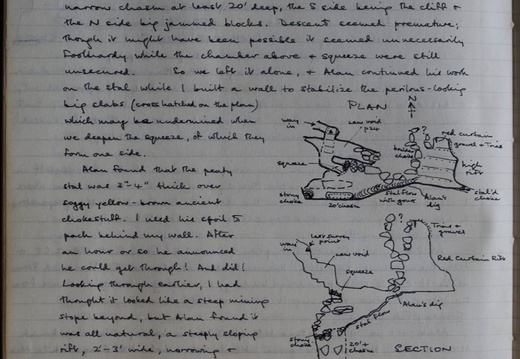 narrow chasm at least 20' deep, the S side being the cliff +
the N side big jammed blocks. Descent seemed premature;
though it might have been possible it seemed unnecessarily
foolhardy while the chamber above + squeeze were still
unsecured. So we left it alone, + Alan continued his work
on the stal while I built a wall to stabilize the perilous-looking
big slabs (cross hatched on the plan)
which may be undermined when
we deepen the squeeze, of which they
form one side.
Alan found that the peaty
stal was 3"-4" thick over
soggy yellow-brown ancient
chokestuff. I used his spoil to
pack behind my wall. After
an hour or so he announced
he could get through! And did!
Looking through earlier, I had
thought it looked like a steep mining
stope beyond, but Alan found it
was all natural, a steeply sloping
rift, 2'-3' wide, narrowing +
PLAN
N
way in
Low void
?
red curtain
gravel + Trias
boulder choke
high rift
squeeze
stony choke
20' chasm
stal flow
Alan's dig
stal'd choke
last survey point
way in
Low void
squeeze
?
Trias + gravel
Red Curtain Rift
Alan's dig
stal flow
stony choke
20' +
SECTION